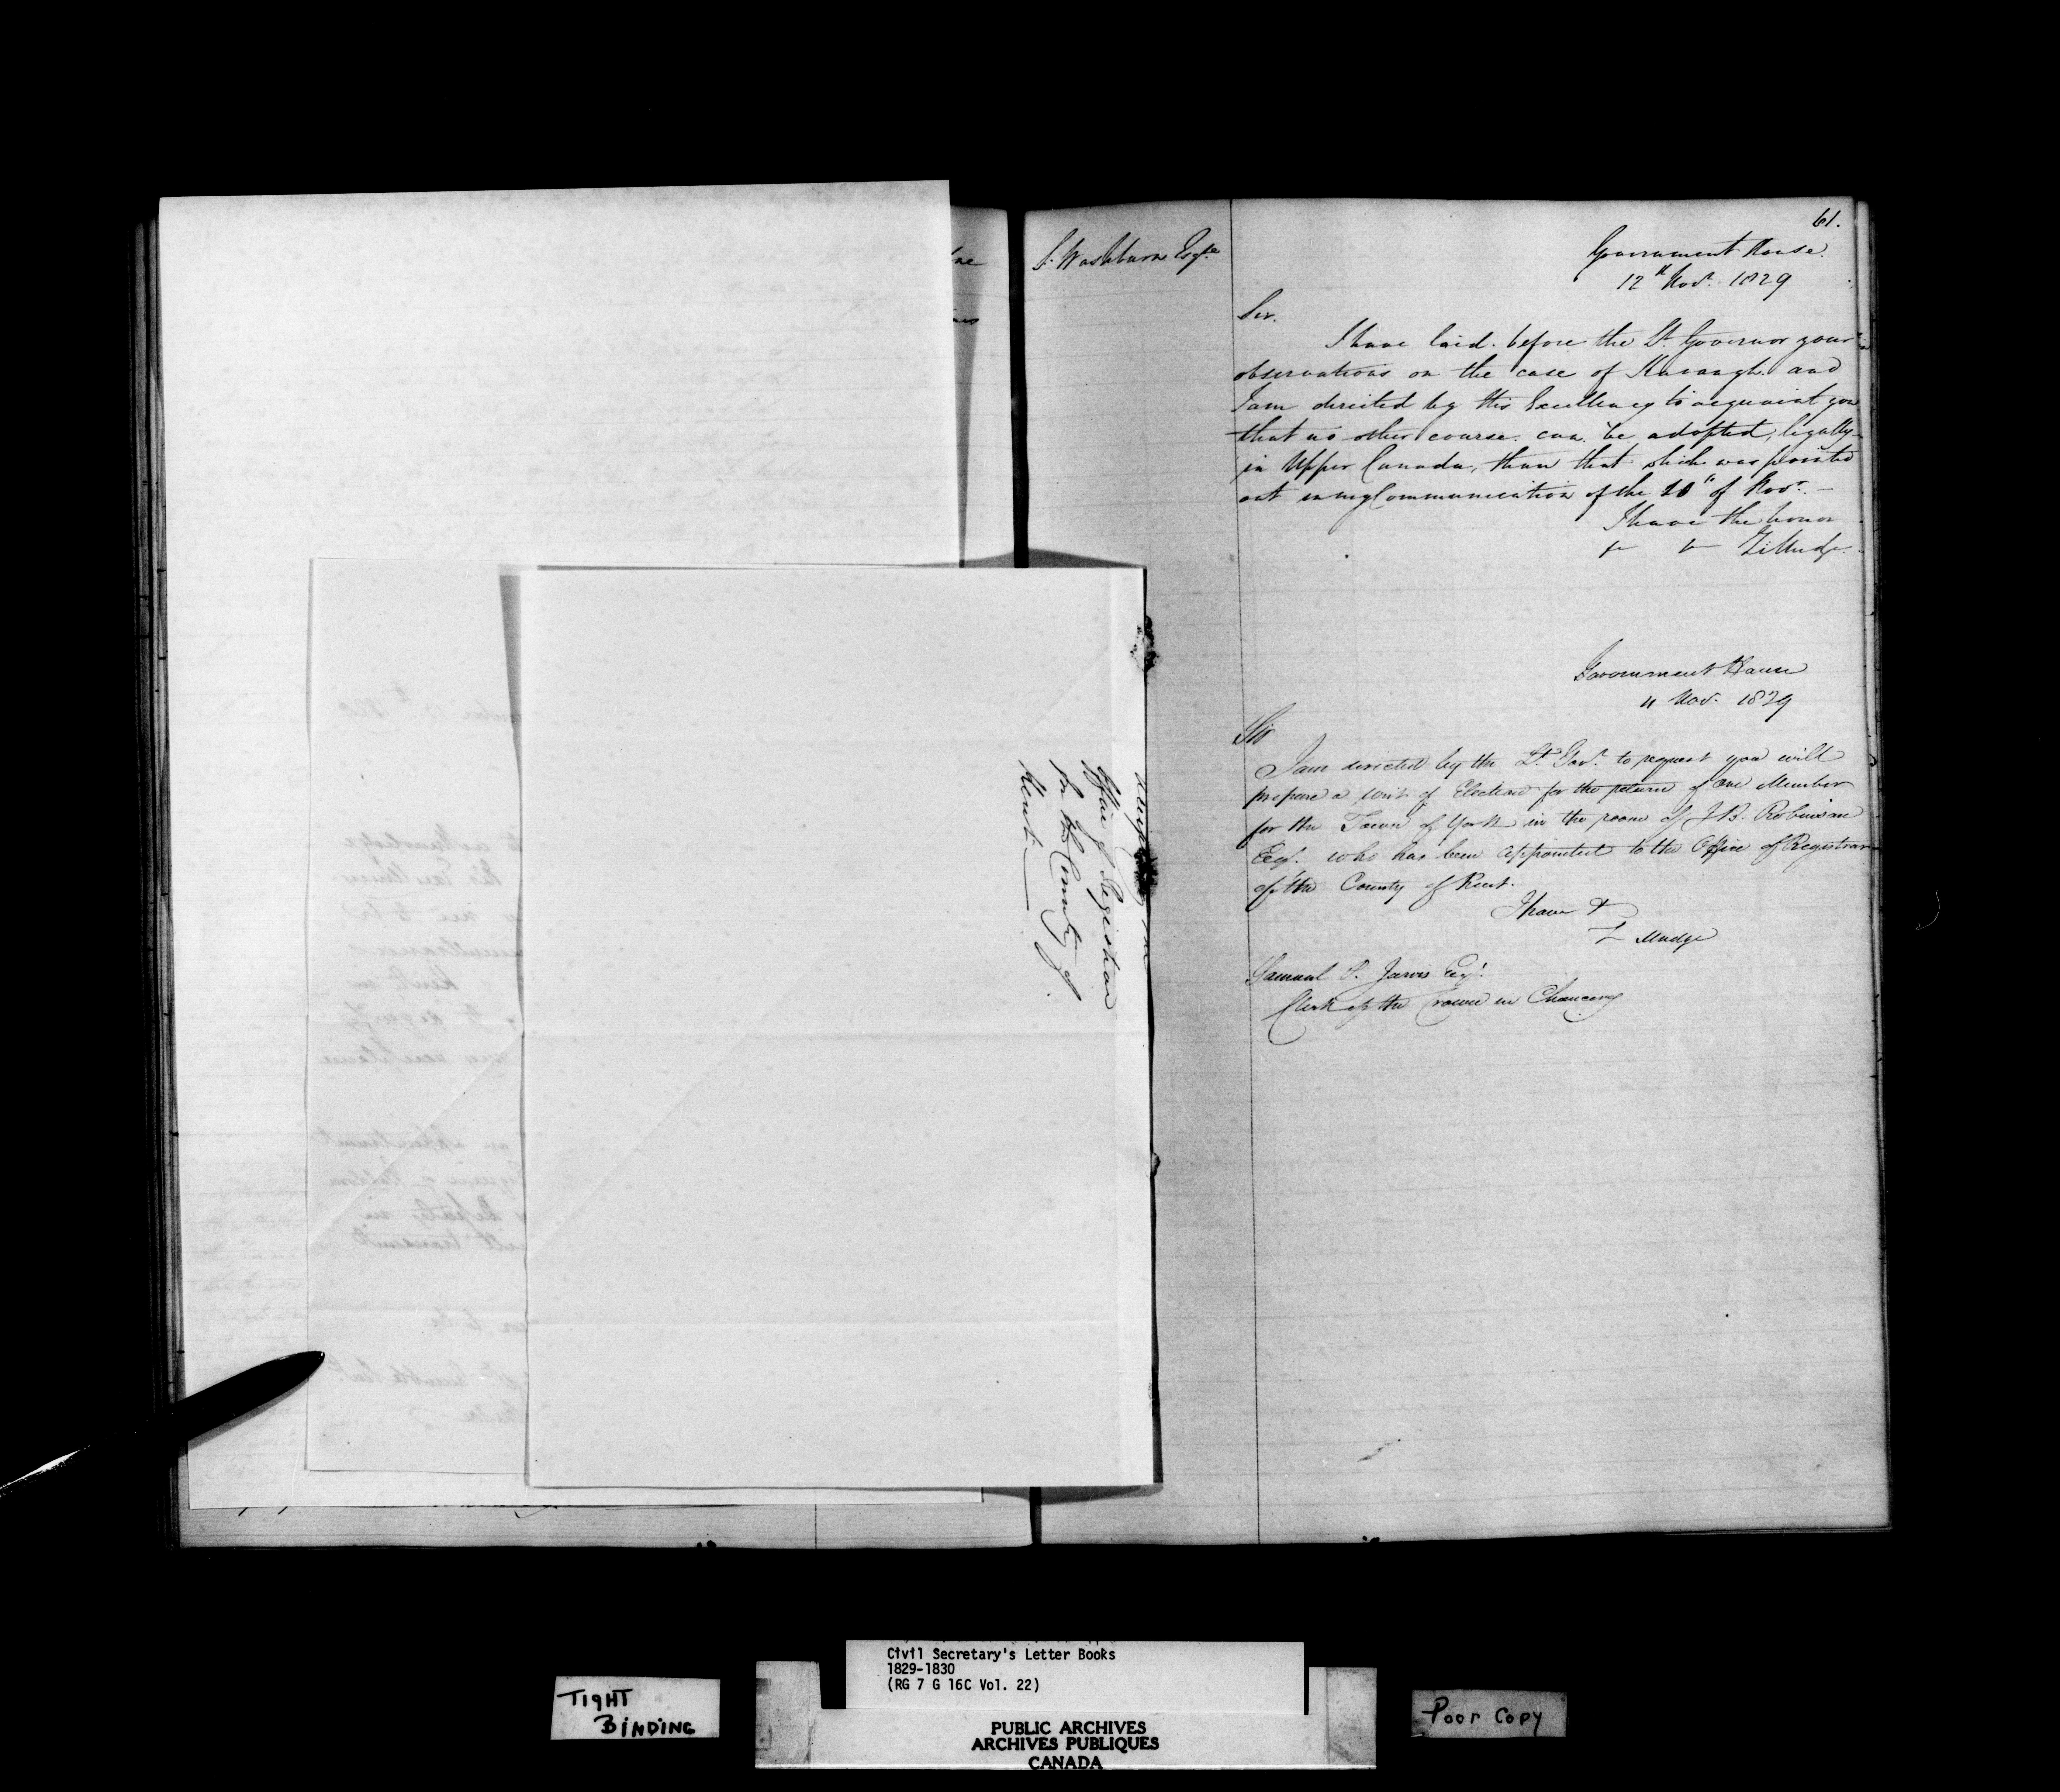 61.
S. Washburn Esqre
Government House
12th Novr. 1829
Sir.
I have laid before the Lt. Governor your
observations on the case of Kavangh. and
I am directed by His Excellency to acquaint you
that no other course. can be adopted, legally
in Upper Canada, than that which was pointed
out in my Communication of the 10th of Novr. —
I have the honor
&c &c Z. Mudge
Government House
11 Nov. 1829
Sir
I am directed by the Lt. Govr. to request you will
prepare a writ of Election for the return of one Member
for the Town of York in the room of J B. Robinson
Esqr. who has been appointed to the Office of Registrar
of the County of Kent.
I have &
Z Mudge
Samuel P. Jarvis Esqr.
Clerk of the Crown in Chancery
Office of Registrar
for the County of
Kent.
TIGHT
BINDING
Civil Secretary's Letter Books
1829-1830
(RG 7 G 16C Vol. 22)
PUBLIC ARCHIVES
ARCHIVES PUBLIQUES
CANADA
Poor Copy